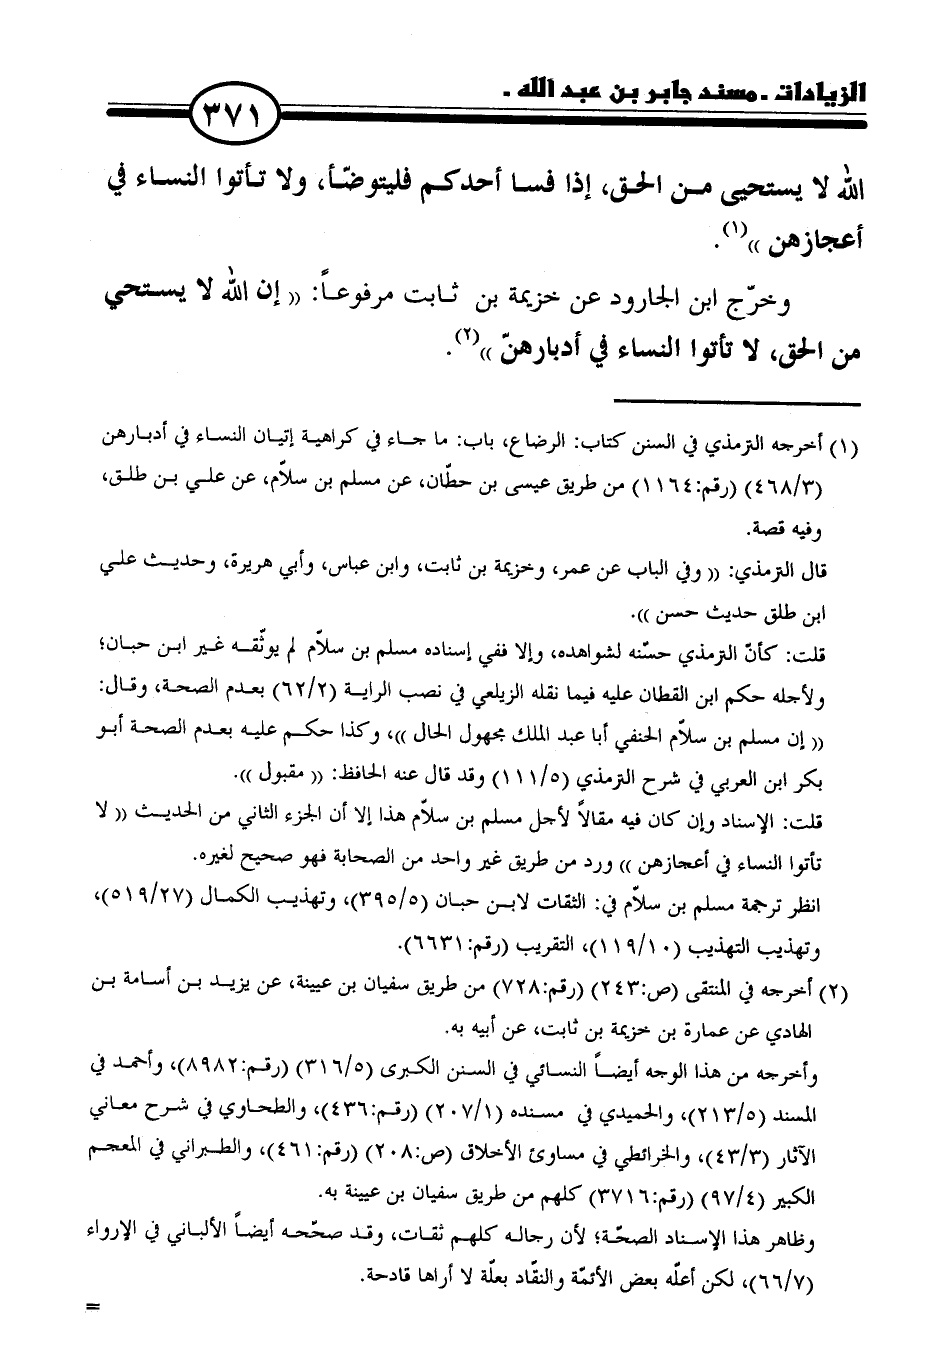 الزيادات ـ مسند جابر بن عبد الله ـ
٣٧١
الله لا يستحيي مـن الحق، إذا فسا أحدكـم فليتوضّـأ، ولا تـأتوا النسـاء في
أعجازهن »(١).
وخرّج ابن الجارود عن خزيمة بن ثـابت مرفوعـاً: « إن الله لا يسـتحي
من الحق، لا تأتوا النساء في أدبارهنّ »(٢).
(١) أخرجه الترمذي في السنن كتاب: الرضاع، باب: ما جـاء في كراهية إتيان النساء في أدبارهن
(٤٦٨/٣) (رقم:١١٦٤) من طريق عيسى بن حطّان، عن مسلم بن سلاّم، عن علـي بـن طلـق،
وفيه قصة.
قال الترمذي: « وفي الباب عن عمر، وخزيمة بن ثابت، وابن عباس، وأبي هريرة، وحديـث علـي
ابن طلق حديث حسن ».
قلت: كأنّ الترمذي حسّنه لشواهده، وإلا ففي إسناده مسلم بن سلاّم لم يوثّقـه غـير ابـن حبـان؛
ولأجله حكم ابن القطان عليه فيما نقله الزيلعي في نصب الراية (٦٢/٢) بعـدم الصحـة، وقـال:
« إن مسلم بن سلاّم الحنفي أبا عبد الملك مجهول الحال »، وكـذا حكـم عليـه بعـدم الصحـة أبـو
بكر ابن العربي في شرح الترمذي (١١١/٥) وقد قال عنه الحافظ: « مقبول ».
قلت: الإسناد وإن كان فيه مقالاً لأجل مسلم بن سلاّم هذا إلا أن الجزء الثاني من الحديـث « لا
تأتوا النساء في أعجازهن » ورد من طريق غير واحد من الصحابة فهو صحيح لغيره.
انظر ترجمة مسلم بن سلاّم في: الثقات لابـن حبـان (٣٩٥/٥)، وتهذيـب الكمـال (٥١٩/٢٧)،
وتهذيب التهذيب (١١٩/١٠)، التقريب (رقم:٦٦٣١).
(٢) أخرجه في المنتقى (ص:٢٤٣) (رقم:٧٢٨) من طريق سفيان بن عيينة، عن يزيـد بـن أسـامة بـن
الهادي عن عمارة بن خزيمة بن ثابت، عن أبيه به.
وأخرجه من هذا الوجه أيضـاً النسـائي في السـنن الكـبرى (٣١٦/٥) (رقـم:٨٩٨٢)، وأحمـد في
المسند (٢١٣/٥)، والحميدي في مسنده (٢٠٧/١) (رقـم:٤٣٦)، والطحـاوي في شـرح معـاني
الآثار (٤٣/٣)، والخرائطي في مساوئ الأخلاق (ص:٢٠٨) (رقم:٤٦١)، والطـبراني في المعجـم
الكبير (٩٧/٤) (رقم:٣٧١٦) كلهم من طريق سفيان بن عيينة به.
وظاهر هذا الإسناد الصحّة؛ لأن رجالـه كلهـم ثقـات، وقـد صحّحـه أيضـاً الألبـاني في الإرواء
(٦٦/٧)، لكن أعلّه بعض الأئمّة والنقّاد بعلّة لا أراها قادحة.
=